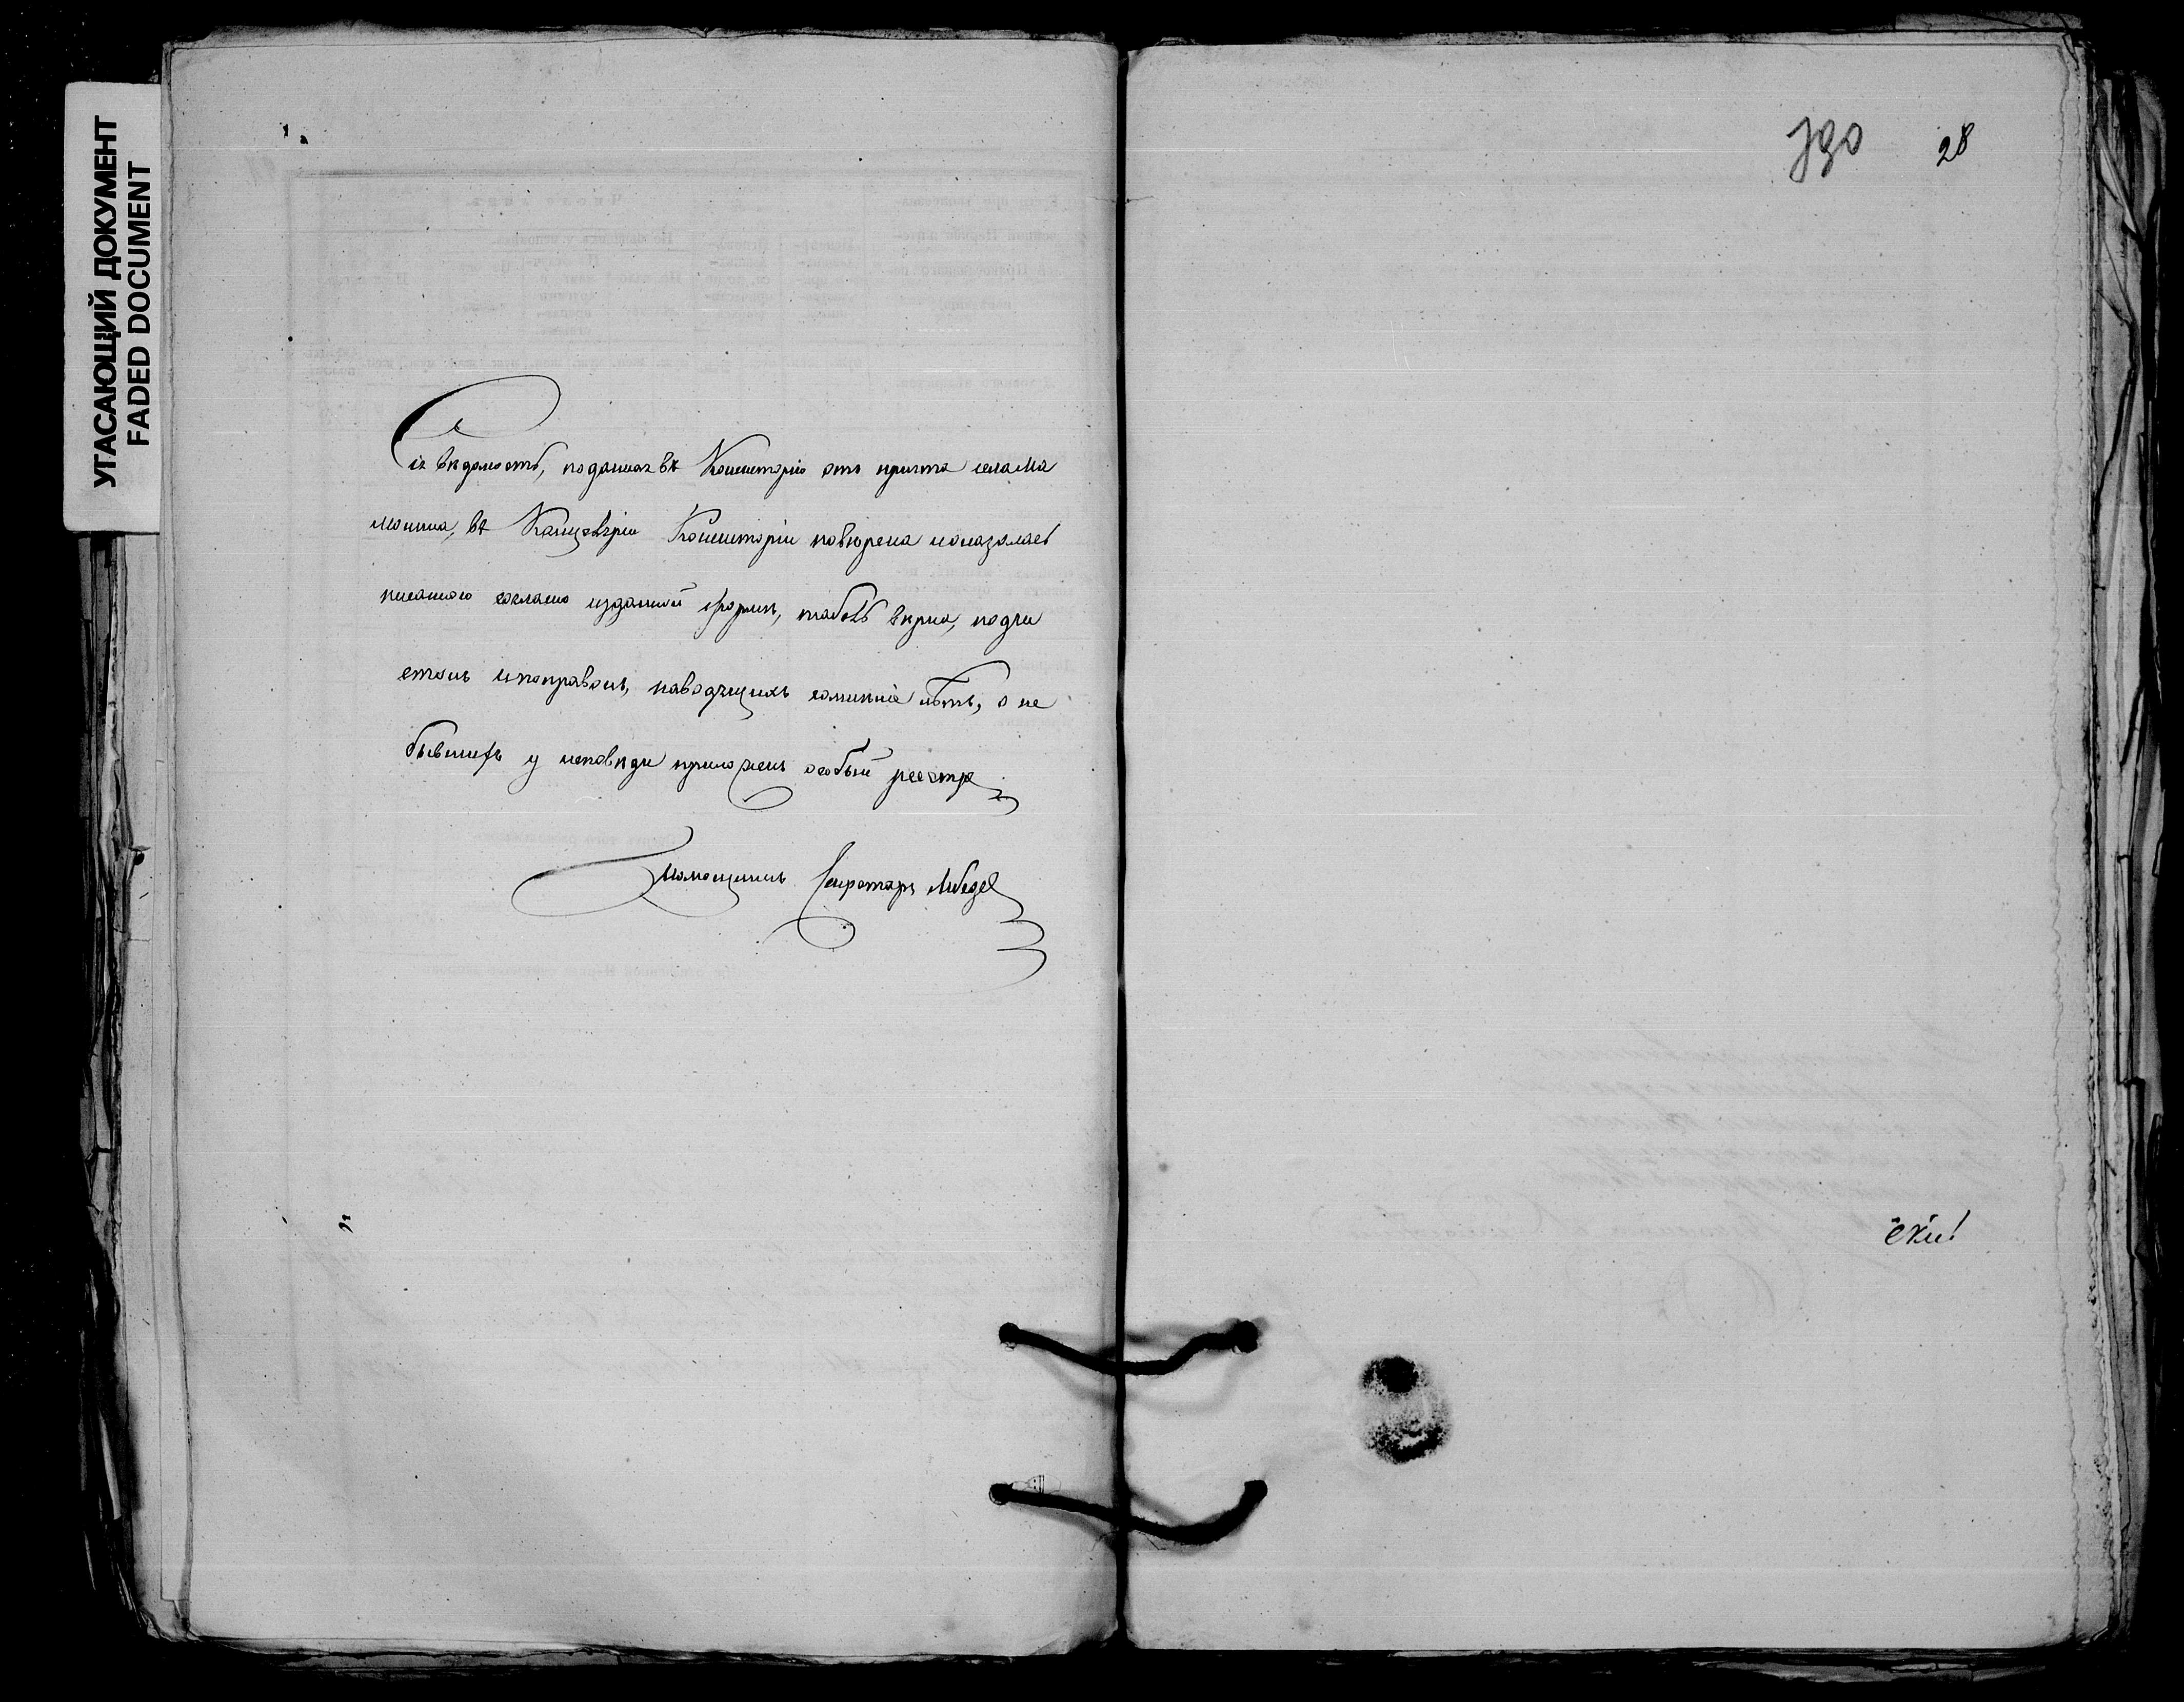 УГАСАЮЩИЙ ДОКУМЕНТ
FADED DOCUMENT
28
Сія вѣдомость, поданная въ Консисторію отъ причта села Ма
въ Канцеляріи Консисторіи повѣрена
писанною согласно изданной формѣ, табель вѣрна, подчи
стокъ и поправокъ, наводящихъ сомнѣніе нѣтъ, о не
бывшихъ у исповѣди приложенъ особый реестръ
Помощникъ Секретаря